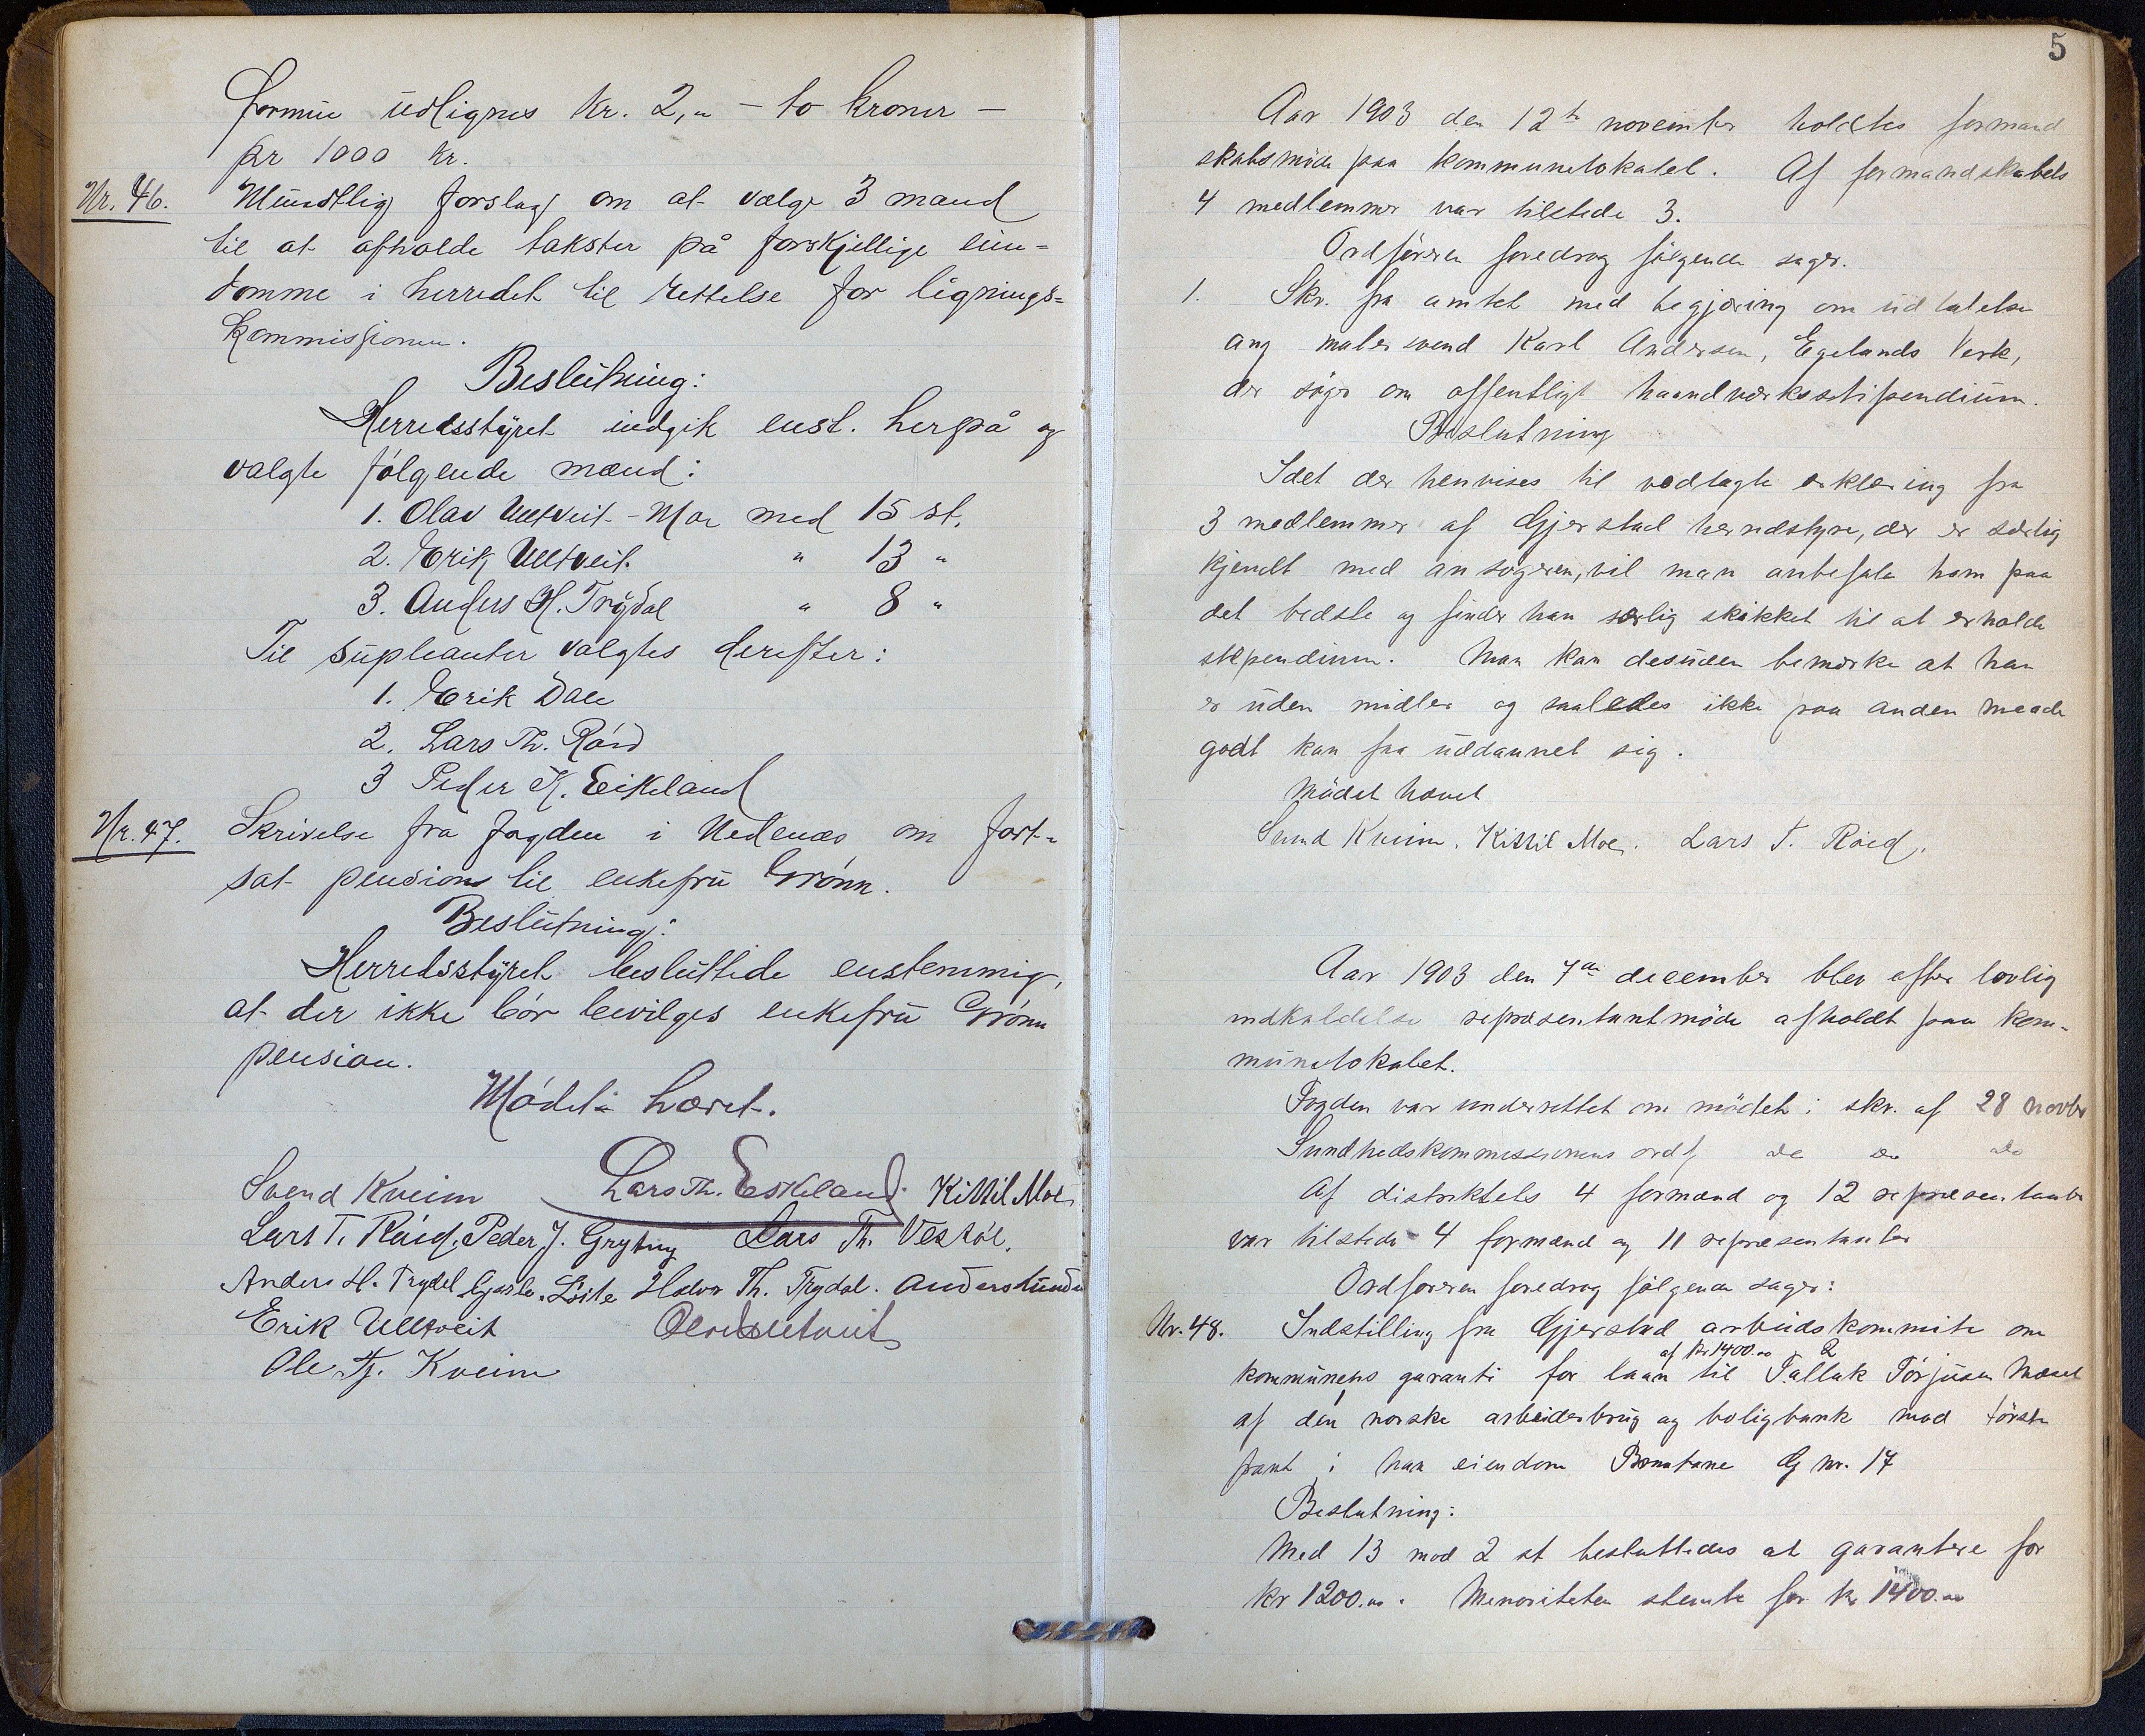 formue udlignes Kr. 2,- – to kroner –
pr 1000 kr.
Nr. 46. Mundtlig forslag om at vælge 3 mænd
til at afholde takster på forskjellige eien=
domme i herredet til rettelse for lignings=
kommissionen.
Beslutning:
Herredsstyret indgik enst. herpå og
valgte følgende mænd:
1. Olav Ulltveit-Moe med 15 st.
2. Erik Ulltveit. " 13 "
3. Anders H. Trydal " 8 "
Til supleanter valgtes derefter:
1. Erik Dale
2. Lars Th. Røed
3 Peder K. Eikeland
Nr. 47. Skrivelse fra fogden i Nedenæs om fort-
sat pension til enkefru Grønn.
Beslutning:
Herredsstyret besluttede enstemmig,
at der ikke bør bevilges enkefru Grønn
pension.
Mødet hævet.
Svend Kveim Lars Th. Eskeland. Kittil Moe
Lars T. Røed. Peder J. Gryting Lars Th. Vestøl.
Anders H. Trydal Løite Halvor Th. Trydal. Anders Lunden
Erik Ulltveit
Ole Tj. Kveim
5
Aar 1903 den 12te november holdtes formand
skabsmøde paa kommunelokalet. Af formandskabets
4 medlemmer var tilstede 3.
Ordføreren foredrog følgende sager.
1. Skr. fra amtet med begjæring om udtalelse
ang malersvend Karl Andersen, Egelands Verk,
der søger om offentligt haandværksstipendium.
Beslutning
Idet der henvises til vedlagte erklæring fra
3 medlemmer af Gjerstad herredstyre, der er særlig
kjendt med ansøgeren, vil man anbefale ham paa
det bedste og finder han særlig skikket til at erholde
stipendium. Man kan desuden bemærke at han
er uden midler og saaledes ikke paa anden maade
godt kan faa uddannet sig.
Mødet hævet
Svend Kveim. Kittil Moe. Lars T. Røed.
Aar 1903 den 7de december blev efter lovlig
indkaldelse repræsentantmøde afholdt paa kom-
munelokalet.
Fogden var underrettet om mødet i skr. af 28 novbr
Sundhedskommissionens ordf do do do
Af distriktets 4 formænd og 12 repræsentanter
var tilstede 4 formænd og 11 repræsentanter
Ordføreren foredrog følgende sager:
Nr. 48. Indstilling fra Gjerstad arbeidskommite om
af kr 1400.00
kommunens garanti for laan til Tallak Torjusen Mæsel
af den norske arbeiderbrug og boligbank mod første
pant i han eiendom G nr. 17
Beslutning:
Med 13 mod 2 st besluttedes at garantere for
kr 1200.00. Minoriteten stemte for kr 1400.00